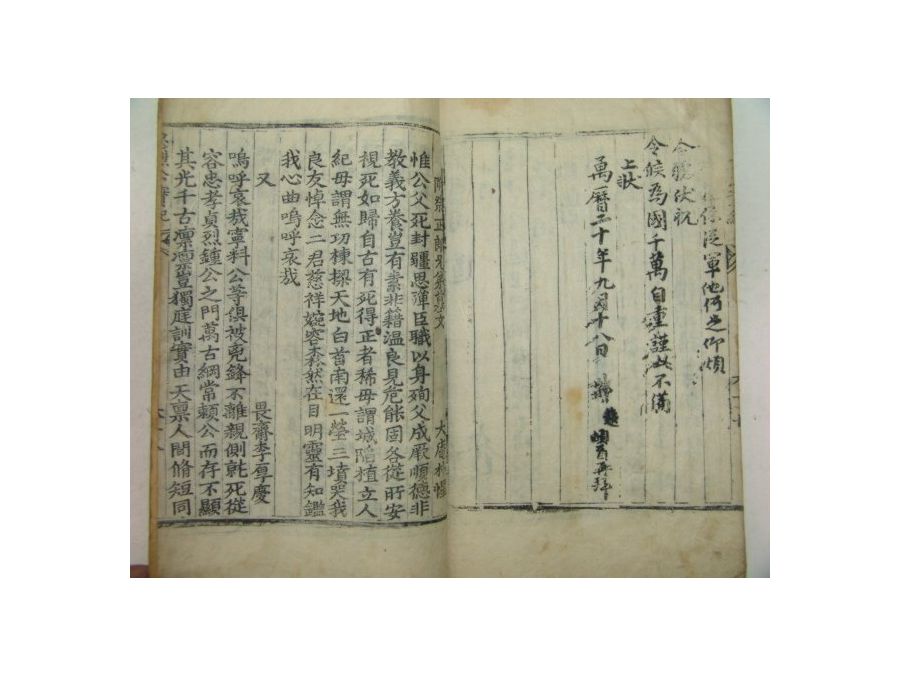 從軍他何足仰煩
令候伏祝
令候爲國千萬自重謹此不備
上狀
萬曆二十年九月十八日 䞭 頓首再拜
惟公父死封疆思殫臣職以身殉父成厥順德非
教義方養豈有素非籍溫良見危能固各從所安
視死如歸自古有死得正者稀毋謂城陷植立人
紀毋謂無功棟樑天地白首南還一塋三墳哭我
良友悼念二君慈祥婉容森然在目明靈有知鑑
我心曲嗚呼哀哉
又 畏齋李厚慶
嗚呼哀哉寧料公等俱被兇鋒不離親側甘死從
容忠孝貞烈鍾公之門萬古綱常賴公而存不顯
其光千古凜凜豈獨庭訓實由天稟人間脩短同